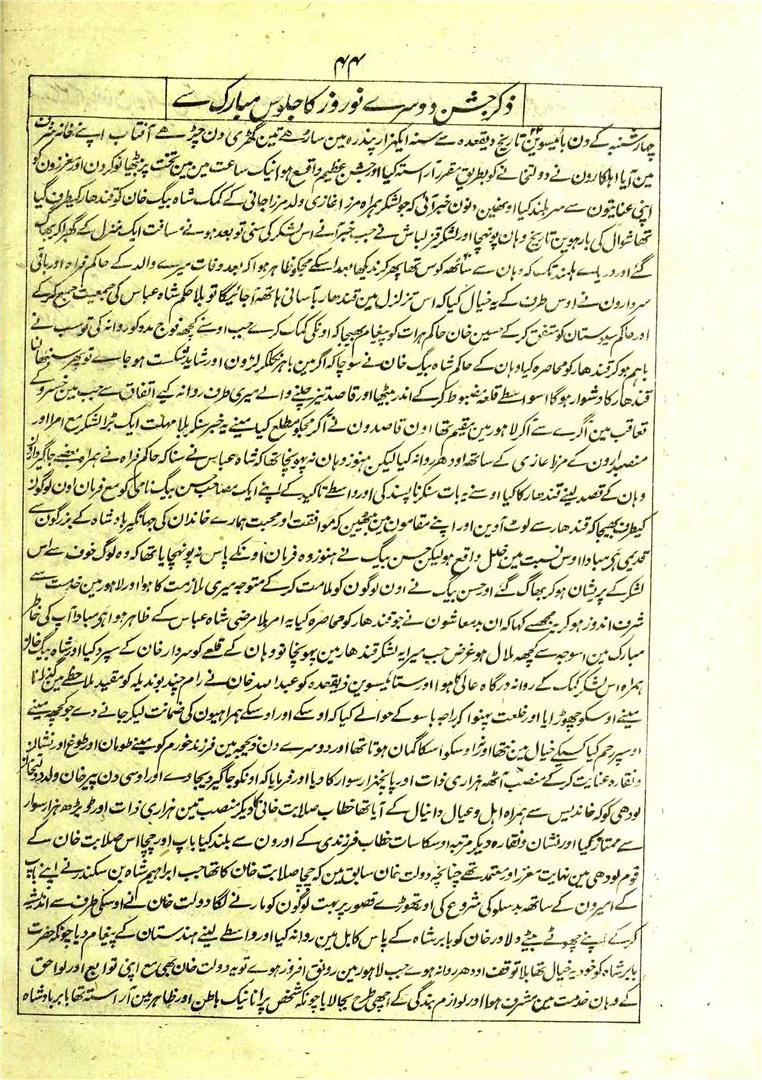 ۴۴
ذکر جشن دوسرے نوروز کا جلوس مبارک سے
چہارشنبہ کے دن بائیسوین ۲۲ تاریخ ذیقعدہ سے سنہ ایکہزار پندرہ مین ساڑھے تین گھڑی دن چڑھے آفتاب اپنے خانہ شرف
مین آیا اہلکارون نے دولتخانے کو بطریق مقرر آراستہ کیا اور جشن عظیم واقع ہوا نیک ساعت مین مین تخت پر بیٹھا نوکرون اور عزیزون کو
اپنی عنایتون سے سربلند کیا اونھین دنون خبر آئی کہ جو لشکر ہمراہ مرزا غازی ولد مرزا جانی کے کمک شاہ بیگ خان کو قندھار کیطرف گیا
تھا شوال کی بارہوین تاریخ وہان پونہچا اور لشکر قزلباش نے جب خبر آنے اس لشکر کی سنی تو بعد ہونے مسافت ایک منزل کے گھبرا کر بھاگ
گئے اور دریاے ہلمند تک کہ وہان سے ساٹھہ کوس تھا پھر کر ندیکھا بعد اسکے مجکو ظاہر ہوا کہ بعد وفات میرے والد کے حاکم فراہ اور باقی
سردارون نے اوس طرف کے یہ خیال کیا کہ اس تزلزل مین قندھار بآسانی ہاتھہ آجائیگا تو بلا حکم شاہ عباس کی جمعیت جمع کر کے
اور حاکم سیوستان کو متفق کر کے حسین خان حاکم ہرات کو پیغام بھیجا کہ اونکی کمک کرے جب اوسنے کچھہ فوج مدد کو روانہ کی تو سب نے
باہم ہو کر قندھار کو محاصرہ کیا وہان کے حاکم شاہ بیگ خان نے سوچا کہ اگر مین باہر نکلکر لڑون اور شاید شکست ہو جاے تو پھر سنبھالنا
قندھار کا دشوار ہوگا اسواسطے قلعہ مضبوط کر کے اندر بیٹھا اور قاصد تیز چلنے والے میری طرف روانہ کیے اتفاق سے جب مین خسرو کے
تعاقب مین آگرے سے آکر لاہور مین مقیم تھا اون قاصدون نے آکر مجکو مطلع کیا مینے یہ خبر سنکر بلا مہلت ایک بڑا لشکر مع امرا اور
منصبدارون کے مرزا غازی کے ساتھہ اودھر روانہ کیا لیکن ہنوز وہان نہ پہونچا تھا کہ شاہ عباس نے سنا کہ حاکم فراہ نے ہمراہ بعضے جاگیردارون
وہان کے قصد لینے قندھار کا کیا اوسنے یہ بات سنکر ناپسند کی اور واسطے تاکید کے اپنے ایک مصاحب حسن بیگ نامی کو مع فرمان اون لوگونکے
کیطرف بھیجا کہ قندھار سے لوٹ آوین اور اپنے مقامون مین بیٹھین کہ موافقت اور محبت ہمارے خاندان کی جہانگیر بادشاہ کے بزرگون سے
قدیمی ہی مبادا اوس نسبت مین خلل واقع ہو لیکن حسن بیگ نے ہنوز وہ فرمان اونکے پاس نہ پونہچایا تھا کہ وہ لوگ خوف سے اس
لشکر کے پریشان ہو کر بھاگ گئے اور حسن بیگ نے اون لوگون کو ملامت کر کے متوجہ میری ملازمت کا ہوا اور لاہور مین خدمت سے
شرف اندوز ہو کر یہ مجھسے کہا کہ ان بدمعاشون نے جو قندھار کو محاصرہ کیا یہ امر بلا مرضی شاہ عباس کے ظاہر ہوا ہی مبادا آپ کی خاطر
مبارک مین اسوجہ سے کچھہ ملال ہو غرض جب میرا یہ لشکر قندھار مین پہونچا تو وہان کے قلعے کو سردار خان کے سپرد کیا اور شاہ بیگ خان
ہمراہ اس لشکر کمک کے روانہ درگاہ عالی کا ہوا اور ستائیسوین ذیقعدہ کو عبداللہ خان نے رام چند بوندیلہ کو مقید ملاحظے مین گذرانا
مینے اوسکو چھوڑایا اور خلعت پہنوا کر راجہ باسو کے حوالے کیا کہ اوسکے اور اوسکے ہمراہیون کی ضمانت لیکر جانے دے جو کچھہ مینے
اوسپر رحم کیا کسیکے خیال مین نتھا اور اوسکو اسکا گمان ہوتا تھا اور دوسرے دن ذیحجہ مین فرزند خورم کو مینے طومان اور طوغ اور نشان
و نقارہ عنایت کر کے منصب آٹھہ ہزاری ذات اور پانچہزار سوار کا دیا اور فرمایا کہ اونکو جاگیر دیجاوے اور اوسی دن پیر خان ولد دولتخان
لودھی کو کہ خاندیس سے ہمراہ اہل و عیال دانیال کے آیا تھا خطاب صلابت خانی کا دیکر منصب تین ہزاری ذات اور ڈیڑھ ہزار سوار
سے ممتاز کیا اور نشان و نقارہ دیکر مرتبہ اوسکا سات خطاب فرزندی کے اورون سے بلند کیا باپ اور چچا اس صلابت خان کے
قوم لودھی مین نہایت معزز اور معتمد تھے چنانچہ دولت خان سابق مین کہ چچا صلابت خان کا تھا جب ابراہیم شاہ بن سکندر نے اپنے باپ
کے امیرون کے ساتھہ بدسلوکی شروع کی اور تھوڑے قصور پر بہت لوگون کو مارنے لگا دولت خان نے اوسکی طرف سے اندیشہ
کر کے اپنے چھوٹے بیٹے دلاور خان کو بابر شاہ کے پاس کابل مین روانہ کیا اور واسطے لینے ہندستان کے پیغام دیا چونکہ حضرت
بابر شاہ کو خود یہ خیال تھا بلا توقف اودھر روانہ ہوے جب لاہور مین رونق افروز ہوے تو یہ دولت خان بھی مع اپنی توابع اور لواحق
کے وہان خدمت مین مشرف ہوا اور لوازم بندگی کے اچھی طرح بجا لایا چونکہ شخص پرانا نیک باطن اور ظاہر مین آراستہ تھا بابر بادشاہ